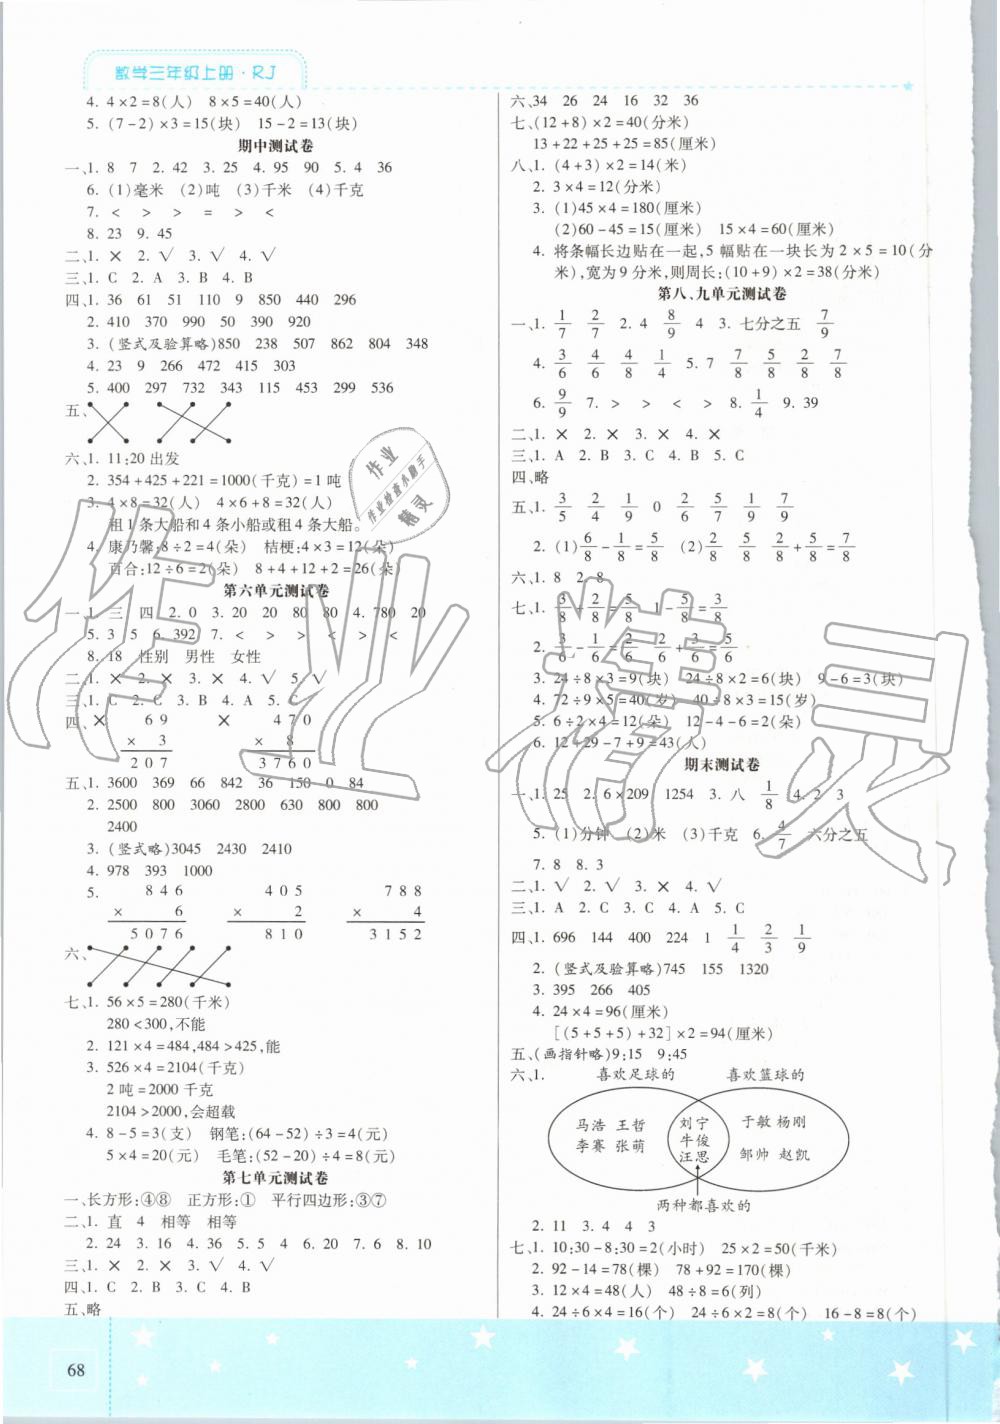 数学三年级上册·RJ
4. 4×2=8(人)  8×5=40(人)
5. (7-2)×3=15(块)  15-2=13(块)
期中测试卷
一、1. 8  7  2. 42  3. 25  4. 95  90  5. 4  36
6. (1)毫米  (2)吨  (3)千米  (4)千克
7. <  >  >  =  >  <
8. 23  9. 45
二、1. ×  2. √  3. √  4. √
三、1. C  2. A  3. B  4. B
四、1. 36  61  51  110  9  850  440  296
2. 410  370  990  50  390  920
3. (竖式及验算略)850  238  507  862  804  348
4. 23  9  266  472  415  303
5. 400  297  732  343  115  453  299  536
五、
六、1. 11:20出发
2. 354+425+221=1000(千克)=1吨
3. 4×8=32(人)  4×6+8=32(人)
租1条大船和4条小船或租4条大船。
4. 康乃馨:8÷2=4(朵)  桔梗:4×3=12(朵)
百合:12÷6=2(朵)  8+4+12+2=26(朵)
第六单元测试卷
一、1. 三  四  2. 0  3. 20  20  80  80  4. 780  20
5. 3  5  6. 392  7. <  >  >  <  >  <
8. 18  性别  男性  女性
二、1. ×  2. ×  3. ×  4. √  5. √
三、1. C  2. C  3. B  4. A  5. C
四、×  69  ×  470
×  3  ×  8
207  3760
五、1. 3600  369  66  842  36  150  0  84
2. 2500  800  3060  2800  630  800  800
2400
3. (竖式略)3045  2430  2410
4. 978  393  1000
5.  846  405  788
×  6  ×  2  ×  4
5076  810  3152
六、
七、1. 56×5=280(千米)
280<300,不能
2. 121×4=484,484>425,能
3. 526×4=2104(千克)
2吨=2000千克
2104>2000,会超载
4. 8-5=3(支)  钢笔:(64-52)÷3=4(元)
5×4=20(元)  毛笔:(52-20)÷4=8(元)
第七单元测试卷
一、长方形:④⑧  正方形:①  平行四边形:③⑦
二、1. 直  4  相等  相等
2. 24  3. 16  4. 36  5. 5  4  6. 20  7. 6  8. 10
三、1. ×  2. ×  3. √  4. √
四、1. C  2. B  3. C  4. B
五、略
68
六、34  26  24  16  32  36
七、(12+8)×2=40(分米)
13+22+25+25=85(厘米)
八、1. (4+3)×2=14(米)
2. 3×4=12(分米)
3. (1)45×4=180(厘米)
(2)60-45=15(厘米)  15×4=60(厘米)
4. 将条幅长边贴在一起,5幅贴在一块长为2×5=10(分
米),宽为9分米,则周长:(10+9)×2=38(分米)
第八、九单元测试卷
一、1. 1/7  2/7  2. 4  8/9  4  3. 七分之五  7/9
4. 3/6  4/6  4/8  1/4  5. 7  7/8  5/8  2/8  7/8
6. 9/9  7. >  >  <  >  8. 1/4  9. 39
二、1. ×  2. ×  3. ×  4. ×
三、1. A  2. B  3. C  4. B  5. C
四、略
五、1. 3/5  2/4  1/9  0  2/6  5/7  1/9  7/9
2. (1)6/8-1/8=5/8  (2)2/8  5/8  2/8+5/8=7/8
六、1. 8  2. 8
七、1. 3/8+2/8=5/8  1-5/8=3/8
2. 3/6-1/6=2/6  2/6+3/6=5/6
3. 24÷8×3=9(块)  24÷8×2=6(块)  9-6=3(块)
4. 72÷9×5=40(岁)  40÷8×3=15(岁)
5. 6÷2×4=12(朵)  12-4-6=2(朵)
6. 12+29-7+9=43(人)
期末测试卷
一、1. 25  2. 6×209  1254  3. 八  1/8  4. 2  3
5. (1)分钟  (2)米  (3)千克  6. 4/7  六分之五
7. 8  8. 3
二、1. √  2. √  3. ×  4. √
三、1. A  2. C  3. C  4. A  5. C
四、1. 696  144  400  224  1  1/4  2/3  1/9
2. (竖式及验算略)745  155  1320
3. 395  266  405
4. 24×4=96(厘米)
[(5+5+5)+32]×2=94(厘米)
五、(画指针略)9:15  9:45
六、1.  喜欢足球的  喜欢篮球的
马浩  王哲  刘宁  于敏  杨刚
李赛  张萌  牛俊  邹帅  赵凯
汪思
两种都喜欢的
2. 11  3. 4  4  3
七、1. 10:30-8:30=2(小时)  25×2=50(千米)
2. 92-14=78(棵)  78+92=170(棵)
3. 12×4=48(人)  48÷8=6(列)
4. 24÷6×4=16(个)  24÷6×2=8(个)  16-8=8(个)
作业
作业检查小助手
精灵
作业精灵